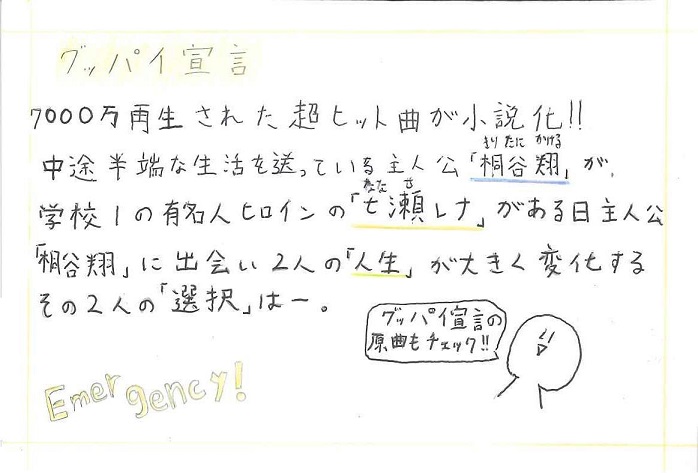 グッバイ宣言
7000万再生された超ヒット曲が小説化!!
中途半端な生活を送っている主人公「桐谷翔」が、
きりたに かける
学校1の有名人ヒロインの「七瀬レナ」がある日主人公
ななせ
「桐谷翔」に出会い2人の「人生」が大きく変化する
その2人の「選択」はー。
グッバイ宣言の
原曲もチェック!!
Emergency!